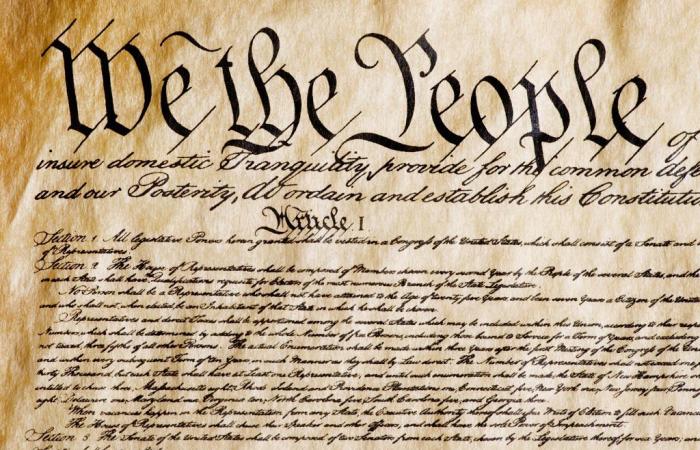 We the People of
insure domestic Tranquility, provide for the common defe
and our Posterity, do ordain and establish this Constitutio
Article. I
Section. 1. All legislative Powers herein granted shall be vested in a Congress of the United States, which shall consist of a Senate and
of Representatives.
Section. 2. The House of Representatives shall be composed of Members chosen every second Year by the People of the several States, and the
in each State shall have Qualifications requisite for Electors of the most numerous Branch of the State Legislature.
No Person shall be a Representative who shall not have attained to the Age of twenty five Years, and been seven Years a Citizen of the
and who shall not, when elected, be an Inhabitant of that State in which he shall be chosen.
Representatives and direct Taxes shall be apportioned among the several States which may be included within this Union, according to their
Numbers, which shall be determined by adding to the whole Number of free Persons, including those bound to Service for a Term of Years, and excluding
not taxed, three fifths of all other Persons. The actual Enumeration shall be made within three Years after the first Meeting of the Congress of the
and within every subsequent Term of ten Years, in such Manner as they shall by Law direct. The Number of Representatives shall not exceed one
thirty Thousand, but each State shall have at Least one Representative; and until such enumeration shall be made, the State of New Hampshire
entitled to chuse three, Massachusetts eight, Rhode Island and Providence Plantations one, Connecticut five, New York six, New Jersey four, Penn
eight, Delaware one, Maryland six, Virginia ten, North Carolina five, South Carolina five, and Georgia three.
When vacancies happen in the Representation from any State, the Executive Authority thereof shall issue Writs of Election to fill such Vacanc
The House of Representatives shall chuse their Speaker and other Officers; and shall have the sole Power of Impeachment.
Section. 3. The Senate of the United States shall be composed of two Senators from each State, chosen by the Legislature thereof, for six Years; and